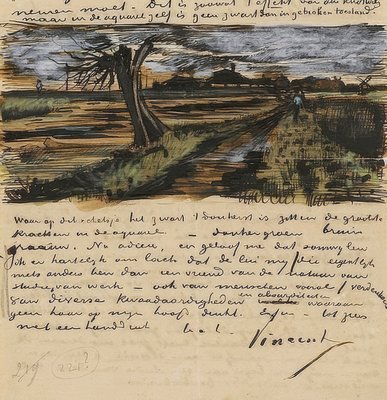 nemen moet. Dit is zoowat 't effekt van die knotwilg
maar in de aquarel zelf is geen zwart dan in gebroken toestand.
Waar op dit schetsje het zwart 't donkerst is zitten de grootste
krachten in de aquarel – donkergroen bruin
graauw. Nu adieu, en geloof me dat somwylen
ik er hartelyk om lach dat de lui my (die eigentlyk
niets anders ben dan een vriend van de natuur van
studie, van werk – ook van menschen vooral) verdenken
van diverse kwaadaardigheden en absurditeiten waarvan
geen haar op myn hoofd denkt. Enfin – tot ziens
met een handdruk t. à t.
Vincent
219 (221?)